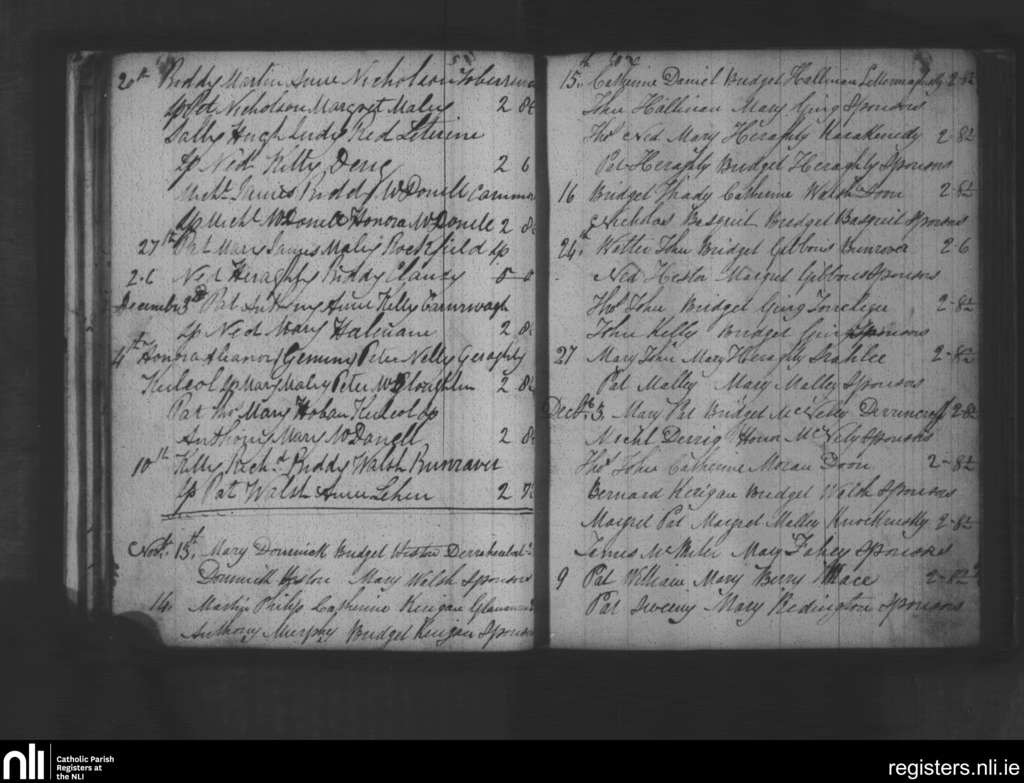 20th Biddy Martin Anne Nicholson
Sp Pat Nicholson Margret Maley 2 8½
Sally Hugh Judy Red
Sp Ned Kitty Deng 2 6
Michl James Biddy McDonell
Sp Michl McDonell Honora McDonele 2 8½
27th Pat Mary James Maley Rockfield Sp
2-6 Ned Heraghty Biddy Clancy 5-0
December 3rd Pat Anthony Anne Kelly
Sp Ned Mary 2 8½
4th Honora Eleanor (Gemini) Peter Nelly Geraghty
Kulcol Sp Mary Maley Peter McLoughlin 2 8½
Pat Thos Mary Hoban Kulcol Sp
Anthony Mary McDonell 2 8½
10th Kitty Richd Biddy Walsh Bunraver
Sp Pat Walsh Anne 2 7½
Novr 13th, Mary Dominick Bridget Heston
Dominick Heston Mary Walsh Sponsors
14, Martin Philip Catherine Kerigan
Anthony Murphy Bridget Kerigan Sponsors
15th Catherine Daniel Bridget Hallinan 2-8½
John Hallinan Mary Ging Sponsors
Thos Ned Mary Heraghty 2-8½
Pat Heraghty Bridget Heraghty Sponsors
16 Bridget Thady Catherine Walsh Doon 2-8½
Nicholas Basquil Bridget Basquil Sponsors
24th Walter John Bridget Gibbons Bunrover 2-6
Ned Hestor Margret Gibbons Sponsors
Thos John Bridget Ging 2-8½
John Kelly Bridget Ging Sponsors
27 Mary John Mary Heraghty 2-8½
Pat Malley Mary Malley Sponsors
Decbr 3, Mary Pat Bridget McNeely 2-8½
Michl Derrig Honor McNeely Sponsors
Thos John Catherine Moran Doon 2-8½
Bernard Kerigan Bridget Walsh Sponsors
Margret Pat Margret Malley 2-8½
James Mary Fahey Sponsors
9 Pat William Mary Berry Mace 2-8½
Pat Sweeny Mary Redington Sponsors
nli
Catholic Parish
Registers at
the NLI
registers.nli.ie